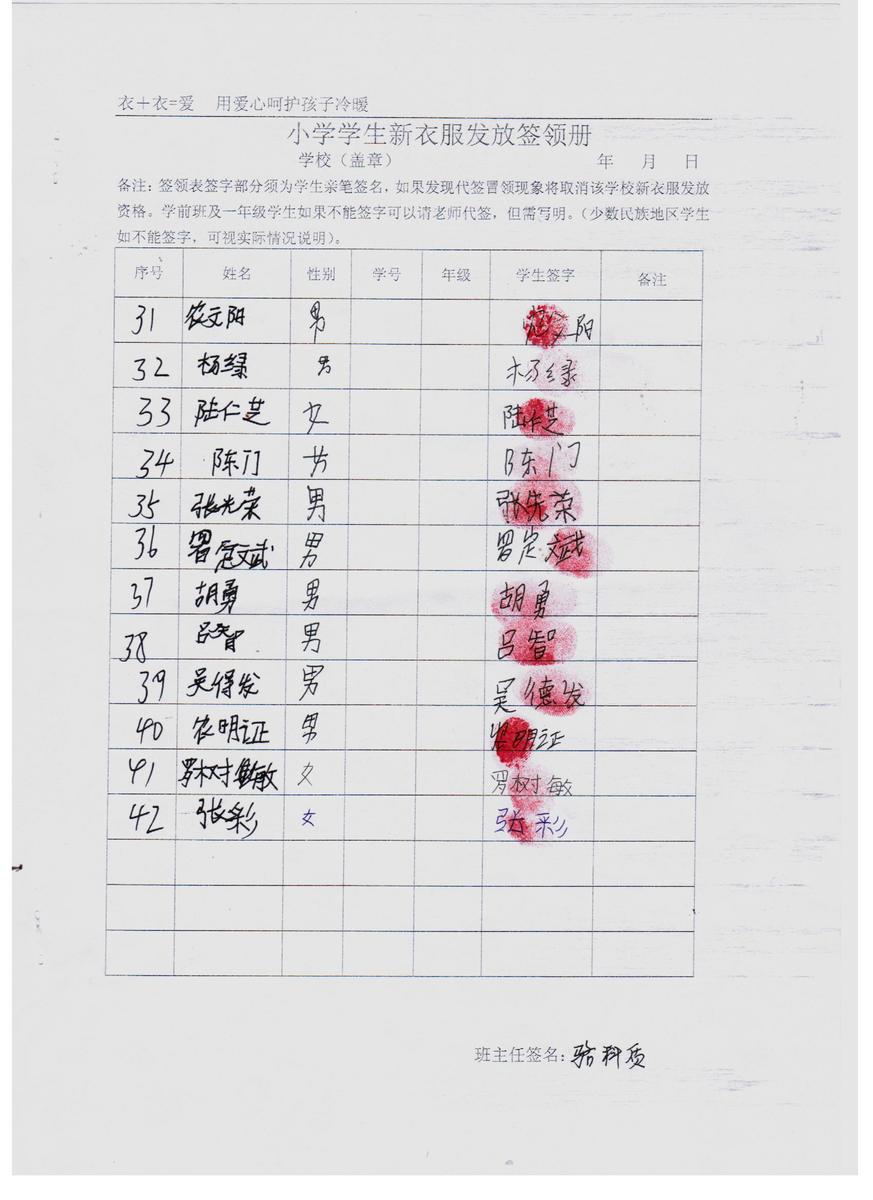 衣＋衣=爱 用爱心呵护孩子冷暖
小学学生新衣服发放签领册
学校（盖章） 年 月 日
备注：签领表签字部分须为学生亲笔签名，如果发现代签冒领现象将取消该学校新衣服发放
资格。学前班及一年级学生如果不能签字可以请老师代签，但需写明。（少数民族地区学生
如不能签字，可视实际情况说明）。
序号 姓名 性别 学号 年级 学生签字 备注
31 农文阳 男 农文阳
32 杨绿 男 杨绿
33 陆仁芝 女 陆仁芝
34 陈门 女 陈门
35 张光荣 男 张先荣
36 罗定斌 男 罗定斌
37 胡勇 男 胡勇
38 吕智 男 吕智
39 吴得发 男 吴德发
40 农明证 男 农明证
41 罗树敏 女 罗树敏
42 张彩 女 张彩
班主任签名：骆科质